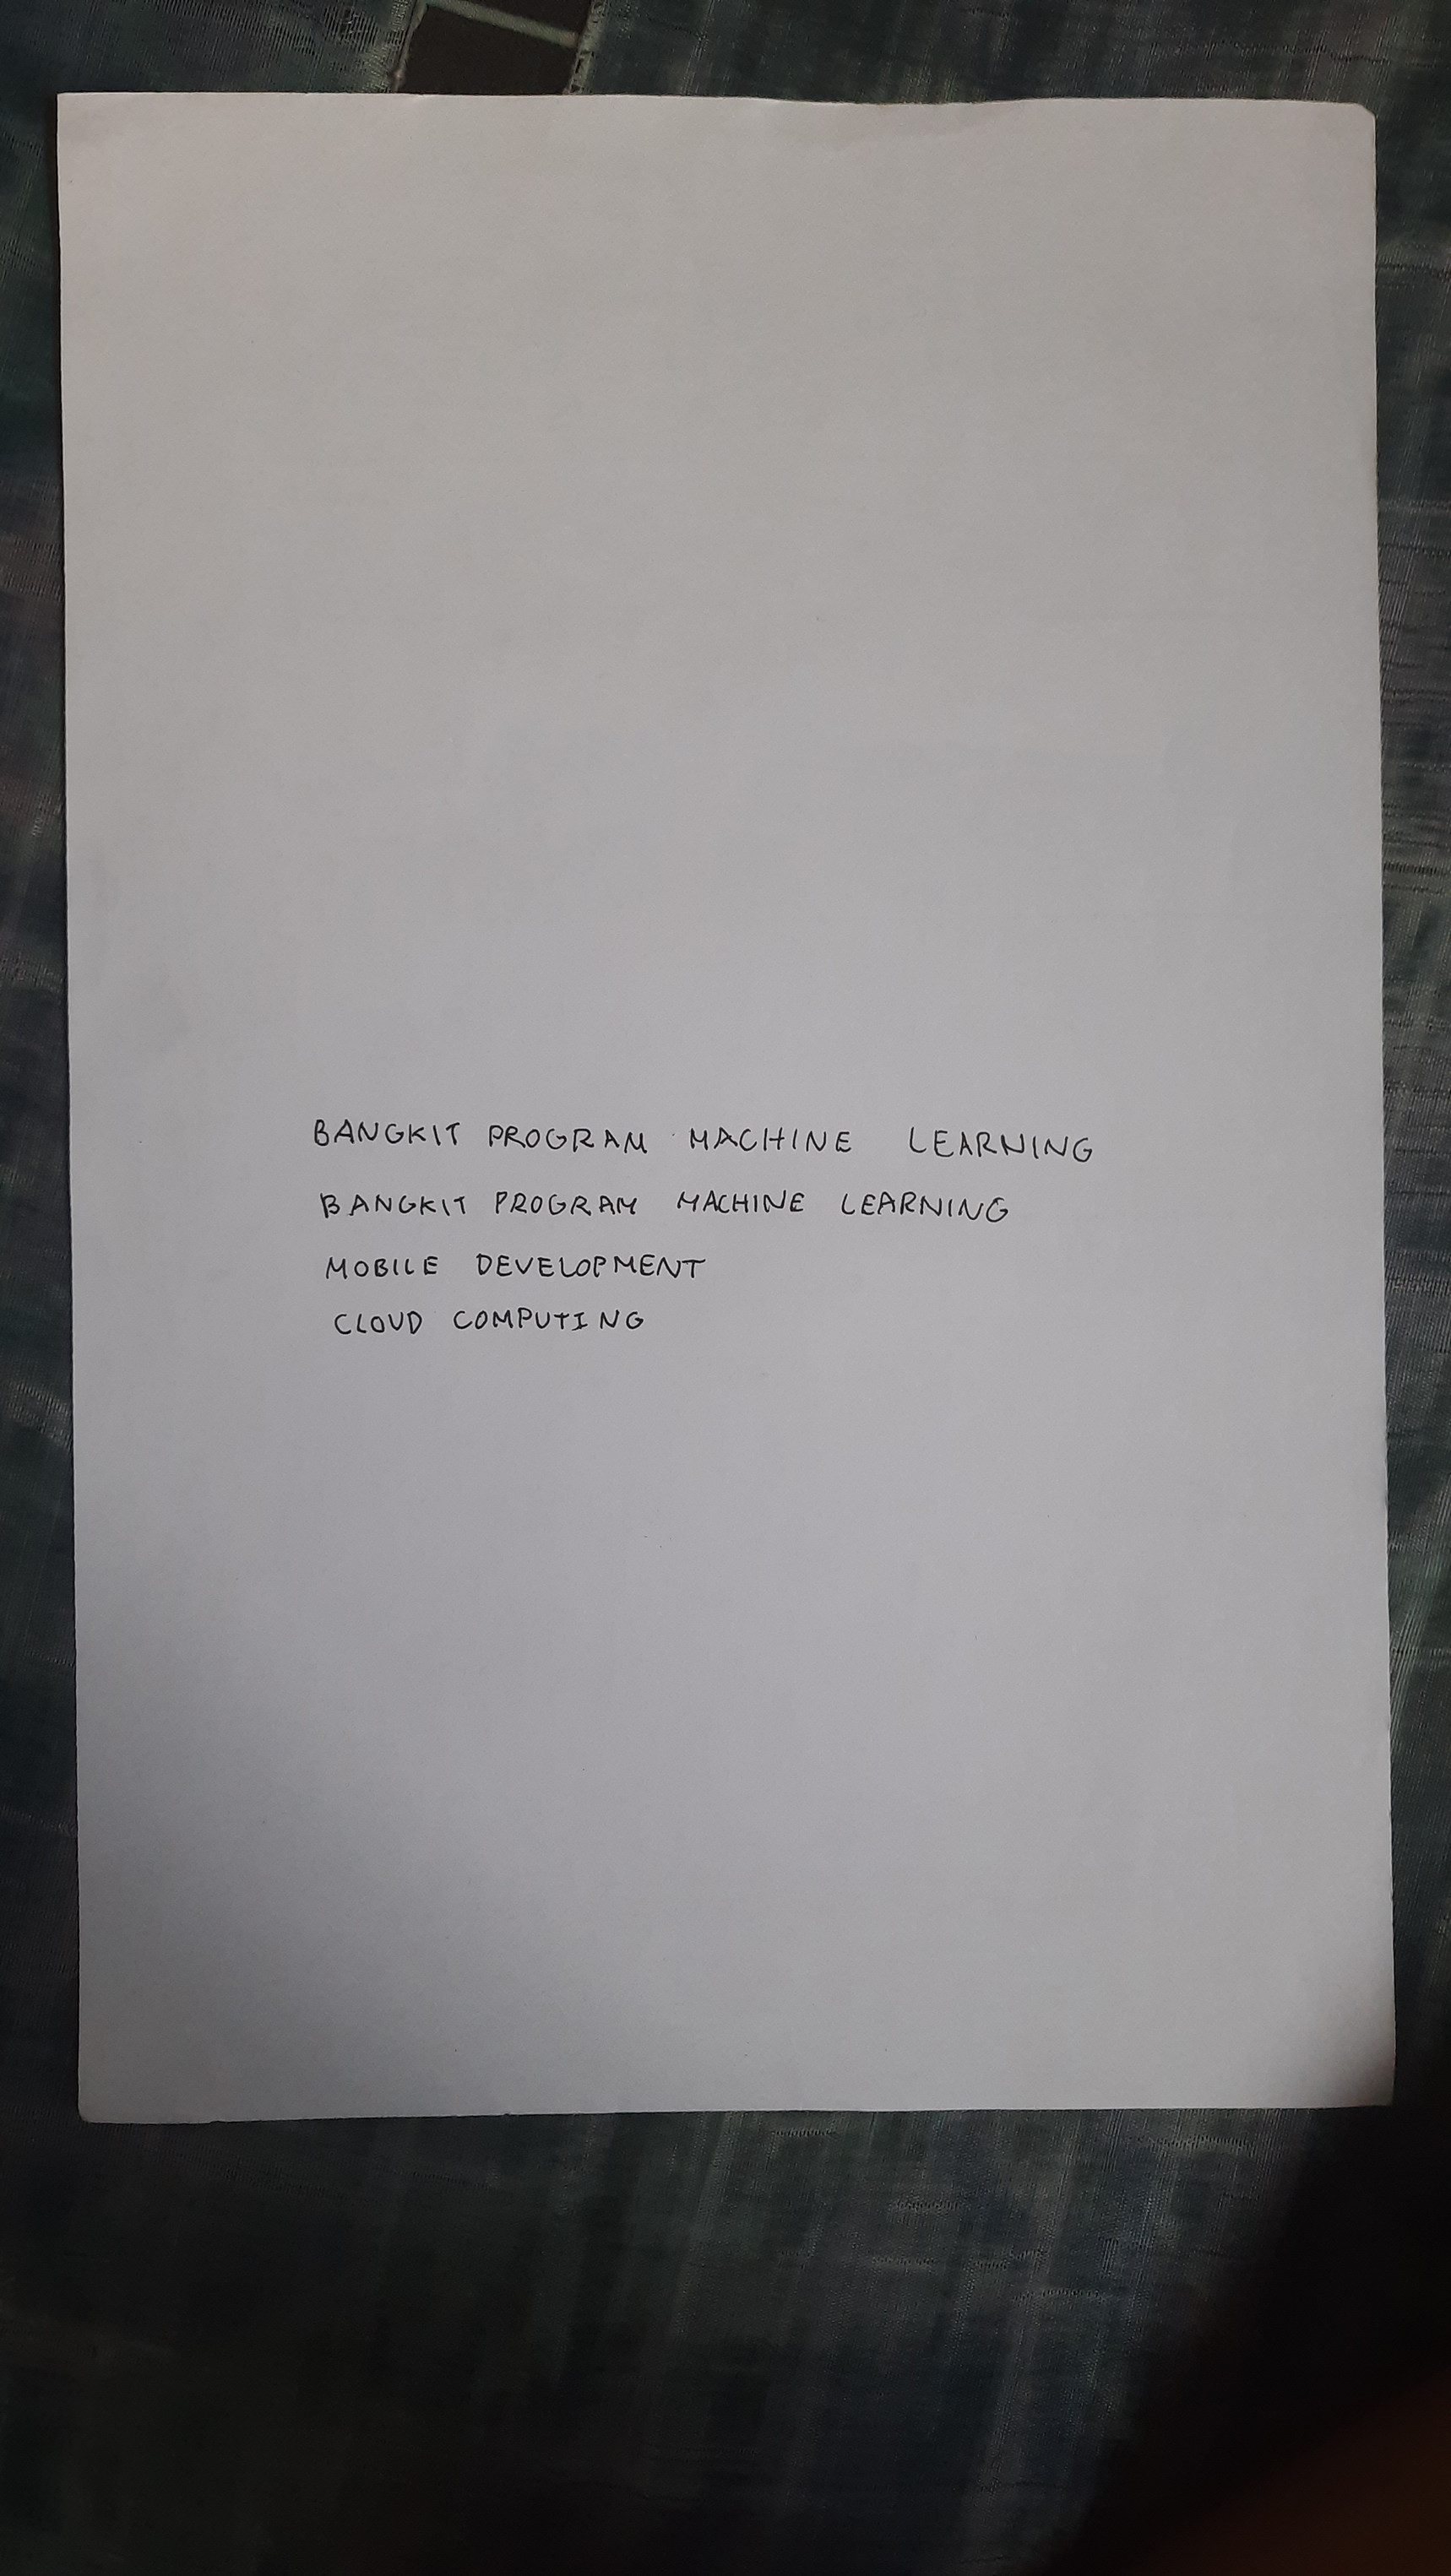 BANGKIT PROGRAM MACHINE LEARNING
BANGKIT PROGRAM MACHINE LEARNING
MOBILE DEVELOPMENT
CLOUD COMPUTING